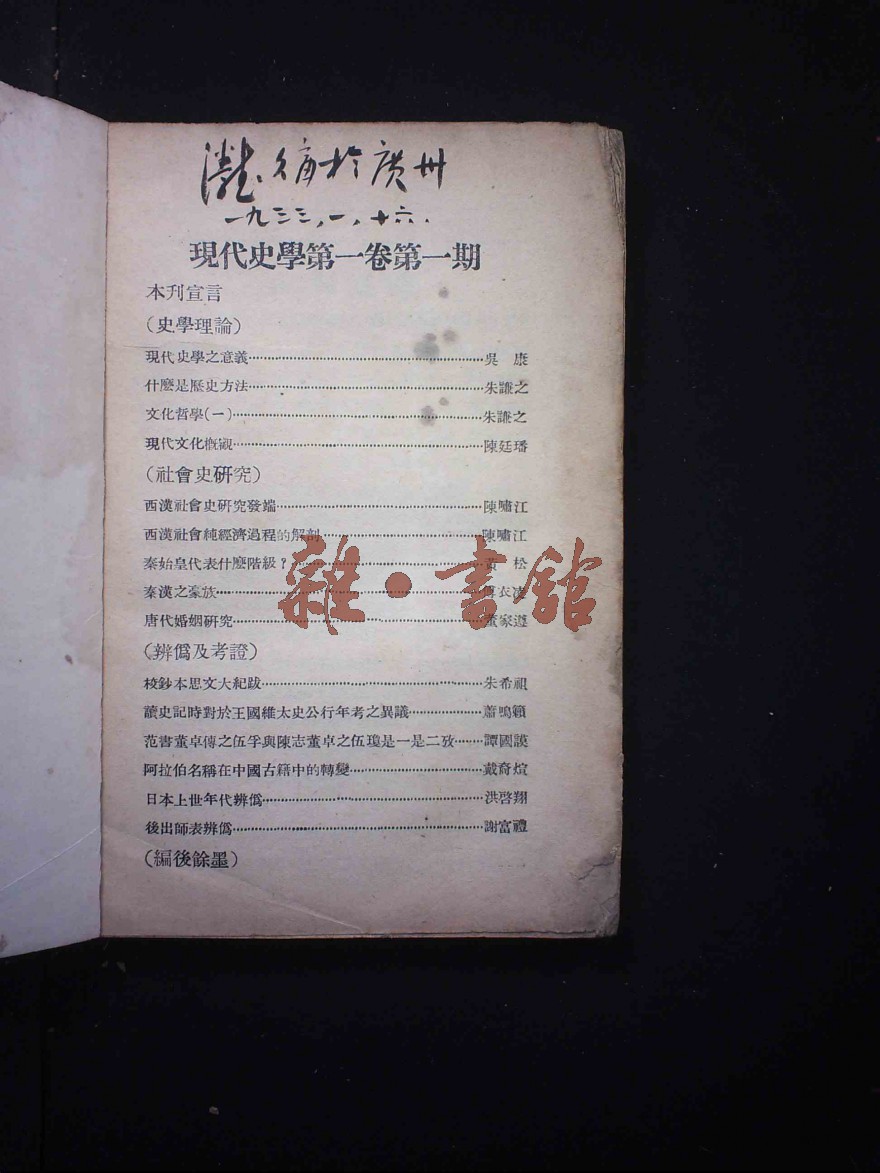 於廣州
一九三三，一，十六．
現代史學第一卷第一期
本刊宣言
（史學理論）
現代史學之意義……吳 康
什麽是歷史方法……朱謙之
文化哲學(一)……朱謙之
現代文化槪觀……陳廷璠
（社會史硏究）
西漢社會史硏究發端……陳嘯江
西漢社會純經濟過程的解剖……陳嘯江
秦始皇代表什麽階級？……黃 松
秦漢之豪族……衣凌
唐代婚姻硏究……董家遵
（辨僞及考證）
校鈔本思文大紀跋……朱希祖
讀史記時對於王國維太史公行年考之異議……蕭鳴籟
范書董卓傳之伍孚與陳志董卓之伍瓊是一是二攷……譚國謨
阿拉伯名稱在中國古籍中的轉變……戴裔煊
日本上世年代辨僞……洪啓翔
後出師表辨僞……謝富禮
（編後餘墨）
雜·書館